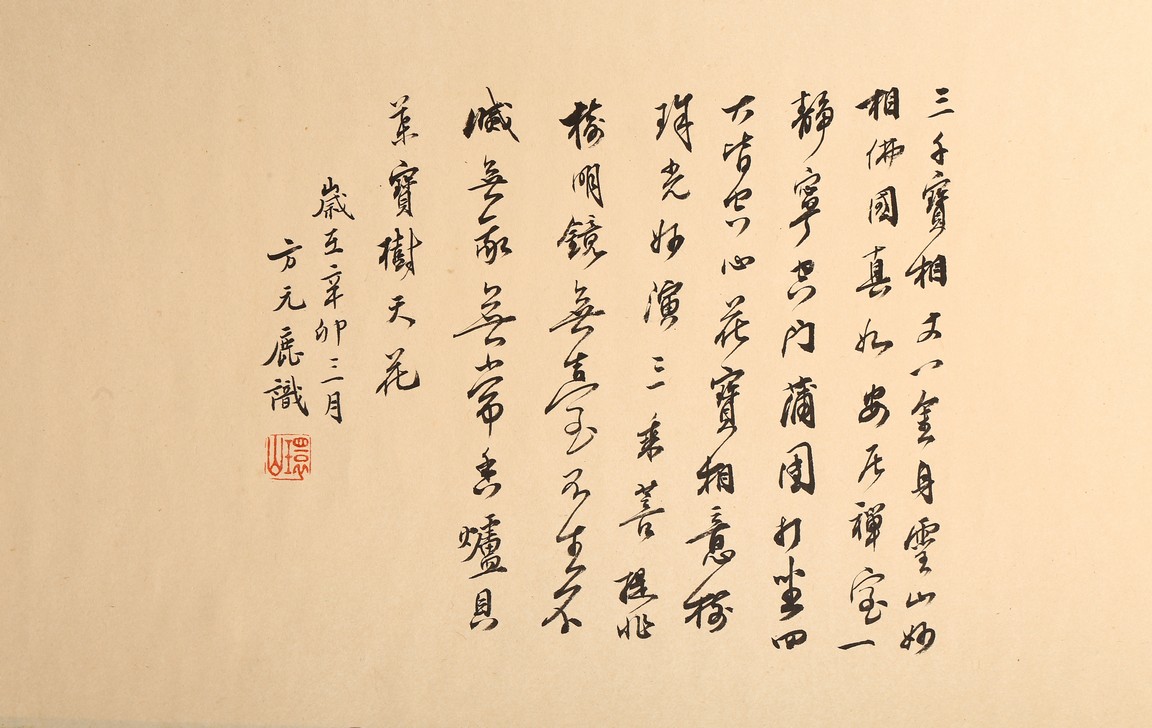 三千寶相丈八金身靈山妙
相佛國真如安居禪室一
靜寧空門蒲團打坐四
大皆空心花寶相意樹
珠光妙演三乘菩提非
樹明鏡無臺不生不
滅無我無常香爐貝
葉寶樹天花
歲在辛卯三月
方元鹿識
環山